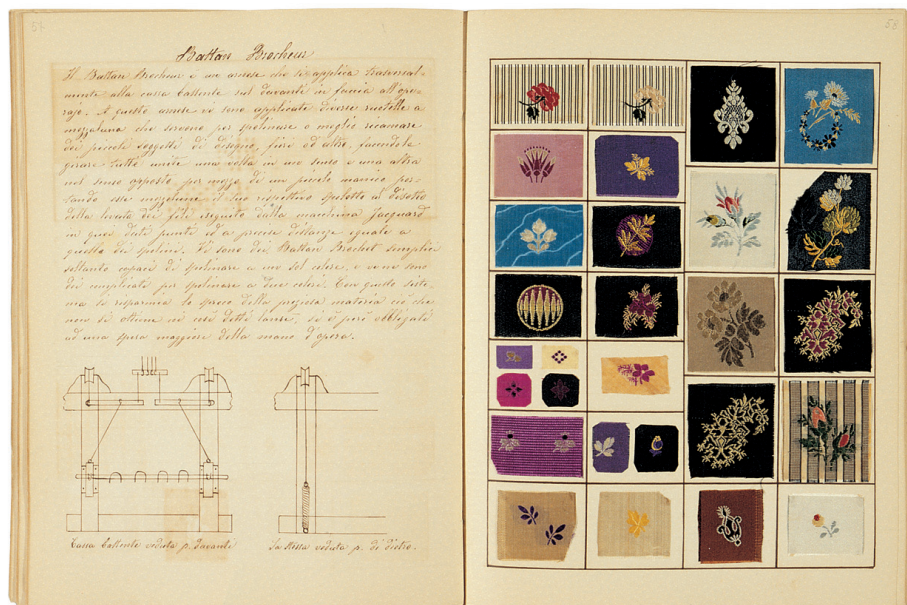 57
58
Battan Brocheur
Il Battan Brocheur è un arnese che si applica trasversal-
mente alla cassa battente sul davanti in faccia all'ope-
rajo. A questo arnese vi sono applicate diverse ruotelle a
mezzaluna che servono per spolinare o meglio ricamare
dei piccoli soggetti di disegno, fiori ed altro, facendole
girare tutte unite una volta in un senso e una altra
nel senso opposto per mezzo di un piccolo manico por-
tando esse mezzelune il suo rispettivo spoletto al disotto
della levata dei fili eseguita dalla macchina Jacquard
in quei dati punti ed a precise distanze eguale a
quella dei spolini. Vi sono dei Battan Brochet semplici
soltanto capaci di spolinare a un sol colore, e ve ne sono
dei complicati per spolinare a due colori. Con questo siste-
ma si risparmia lo spreco della preziosa materia ciò che
non si ottiene nei così detti lansé, si è però obbligati
ad una spesa maggiore della mano d'opera.
Cassa battente veduta p. davanti
La stessa veduta p. di dietro.